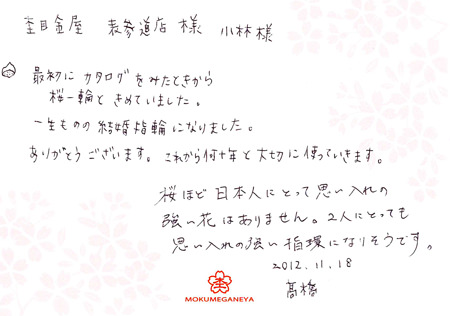 杢目金屋 表参道店 様 小林様
最初に カタログを みたときから
桜一輪と きめていました。
一生ものの 結婚指輪になりました。
ありがとうございます。これから何十年と大切に使っていきます。
桜ほど 日本人にとって思い入れの
強い花はありません。2人にとっても
思い入れの強い指環になりそうです。
2012.11.18
髙橋
杢
MOKUMEGANEYA